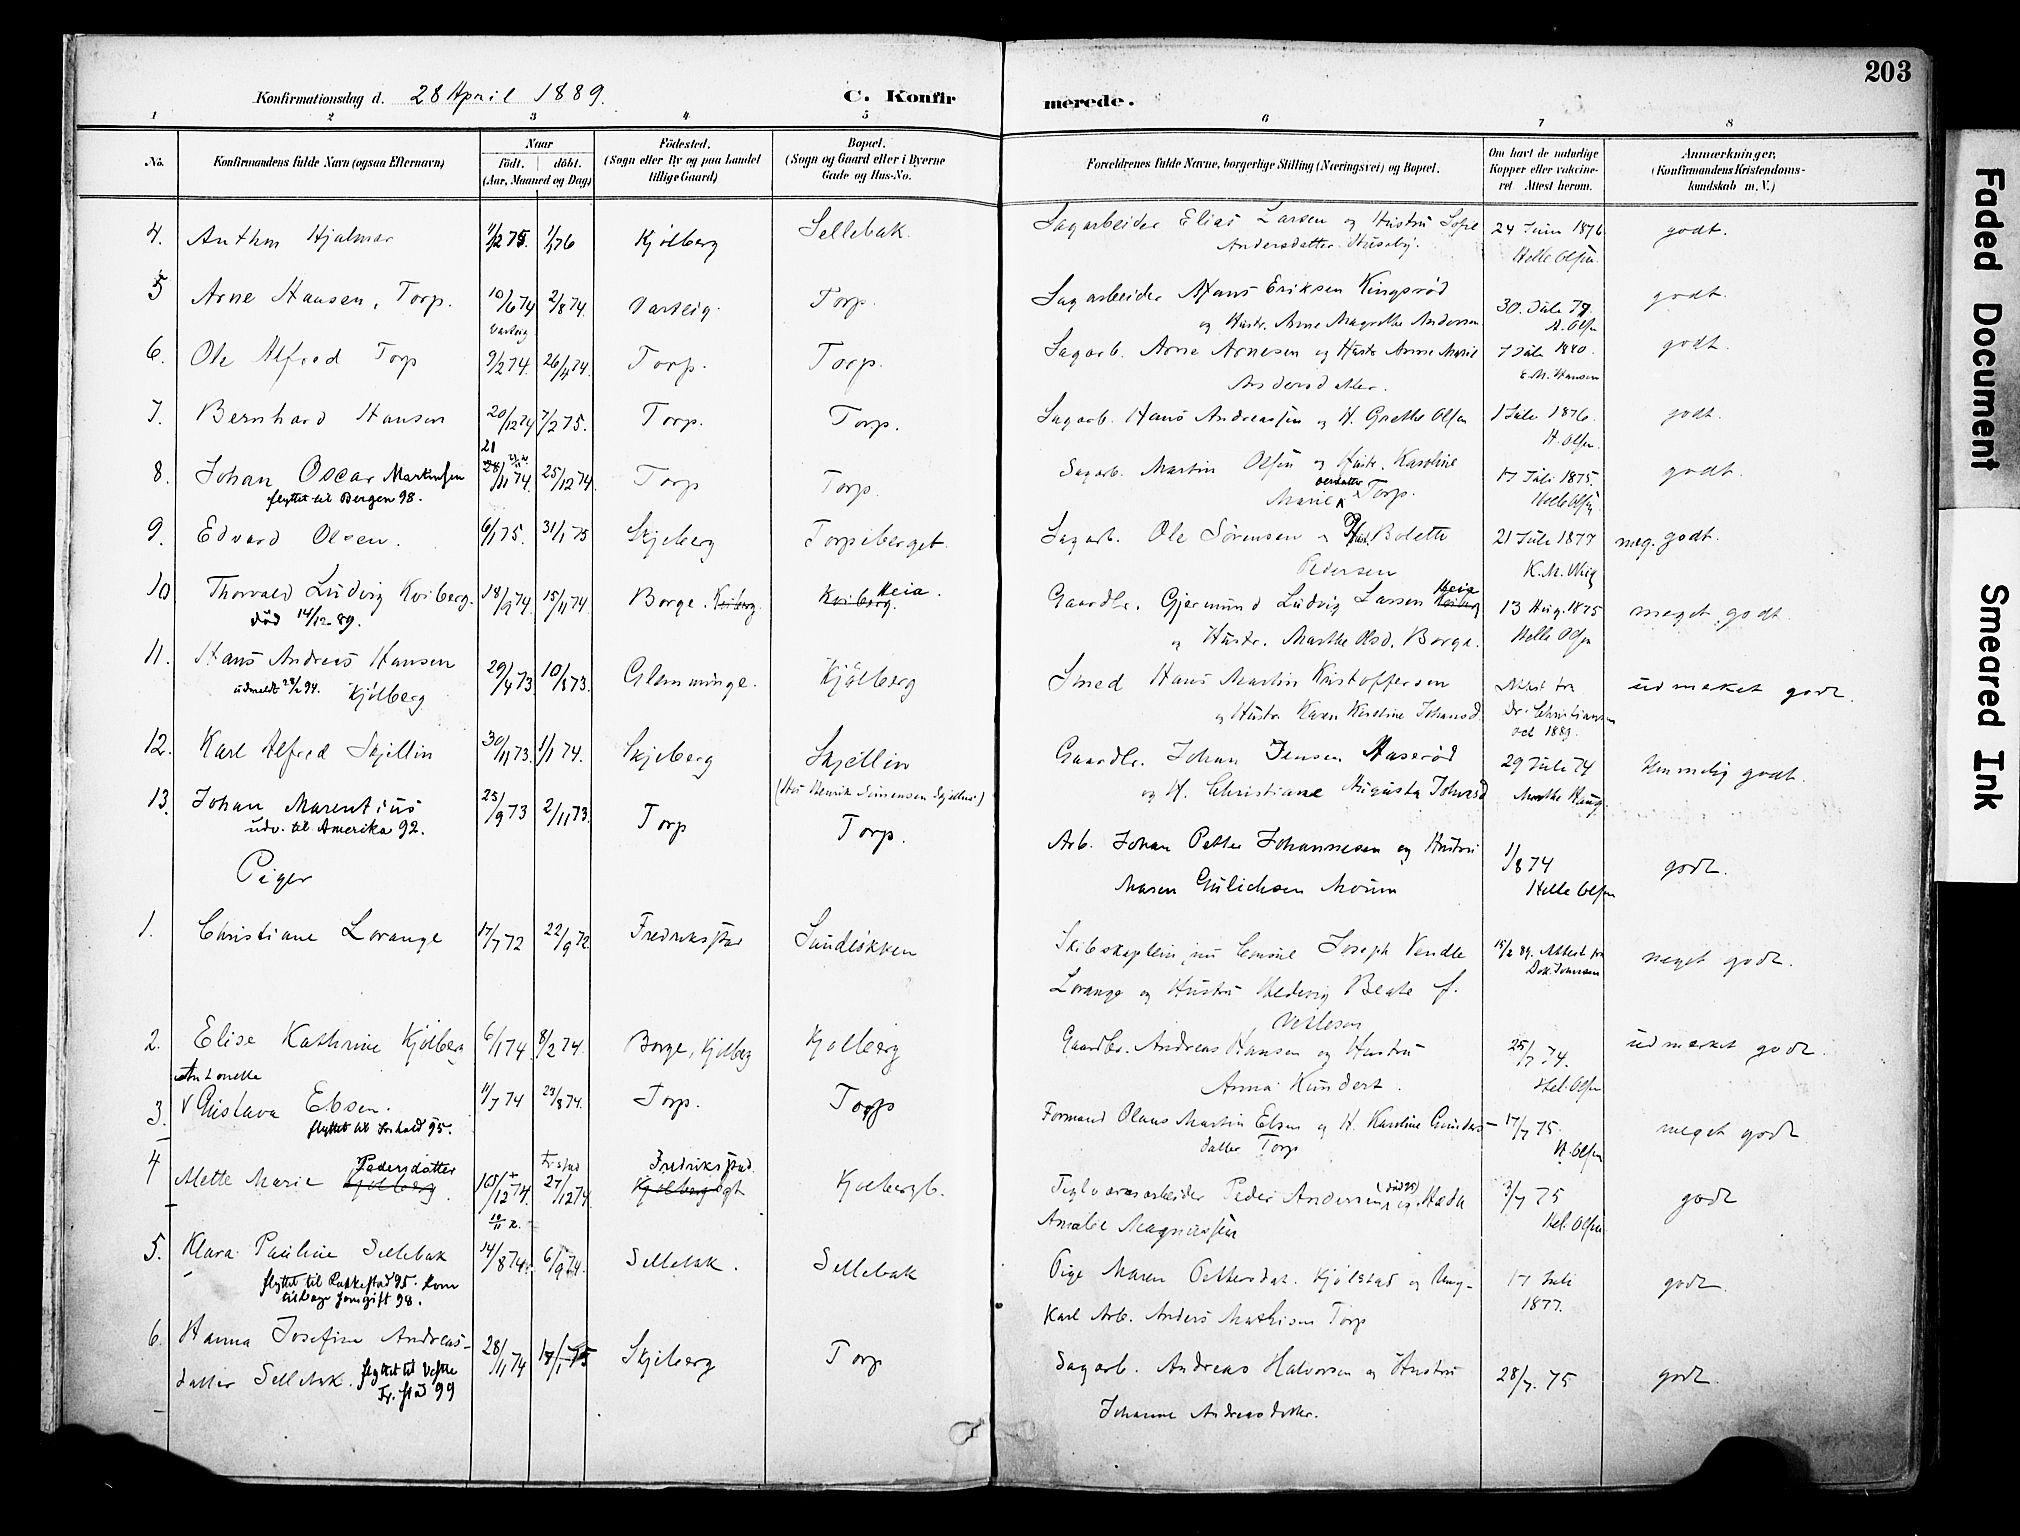 203
Konfirmationsdag d. 28 April 1889.
C. Konfirmerede.
1 2 3 4 5 6 7 8
No.
Konfirmandens fulde Navn (ogsaa Efternavn)
Naar
født. døbt.
(Aar, Maaned og Dag)
Fødested.
(Sogn eller By og paa Landet
tillige Gaard)
Bopæl.
(Sogn og Gaard eller i Byerne
Gade og Hus-No.
Forældrenes fulde Navne, borgerlige Stilling (Næringsvei) og Bopæl.
Om havt de naturlige
Kopper eller vakcine-
ret Attest herom.
Anmærkninger,
(Konfirmandens Kristendoms-
kundskab m. V.)
4. Anthon Hjalmar 11/2 75. 1/1 76 Kjølberg Sellebak. Sagarbeider Elias Larsen og Hustru Sofie 24 Juni 1876 godt.
Andersdatter Huseby. Helle Olsen.
5 Arne Hansen, Torp. 10/6 74 2/8 74. Varteig. Torp. Sagarbeider Hans Eriksen Kingsrød 30. Juli 77 godt.
og Hustr. Anne Magrethe Andersen H. Olsen
Varteig
6. Ole Alfred Torp 9/2 74. 26/4 74. Torp. Torp. Sagarb. Arne Arnesen og Hustr Anne Marie 7 Juli 1880. godt.
Andersdatter. E. M. Hansen
7. Bernhard Hansen 20/12 74 7/2 75. Torp. Torp. Sagarb. Hans Andreassen og H. Grethe Olsen 1 Juli 1876. godt.
H. Olsen.
21
8. Johan Oscar Martinsen 28/11 74. 25/12 74. Torp Torp. Sagarb. Martin Olsen og Hustr. Karoline 17 Juli 1875. godt.
flyttet til Bergen 98. Marie Torp. Helle Olsen
9. Edvard Olsen. 6/1 75. 31/1 75 Skjeberg Torpeberget. Sagarb. Ole Sørensen Bolette 21 Juli 1877 meg. godt.
Pedersen K. M. Wiig
10 Thorvald Ludvig Kviberg. 18/9 74. 15/11 74. Borge. Kviberg. Kviberg. Heia. Gaardbr. Gjermund Ludvig Larsen Kviberg Heia 13 Aug. 1875 meget godt.
død 14/12 89. og Hustr. Marthe Olsd. Borge. Helle Olsen
11. Hans Andreas Hansen 29/4 73 10/8 73. Glemminge. Kjølberg Smed Hans Martin Kristoffersen Attest fra udmærket godt.
udmeldt 28/2 94. Kjølberg og Hustr. Karen Karoline Johansd. Dr. Christiansen
oct 1889.
12. Karl Alfred Skjellin 30/11 73. 1/1 74. Skjeberg Skjellin Gaardbr. Johan Jensen Haserød 29 Juli 74 temmelig godt.
(Hos Henrik Simensen Skjellin) og H. Christiane Augusta Johnsd Marthe Haug.
13. Johan Marentius 25/9 73 2/11 73. Torp Torp. Arb. Johan Petter Johannesen og Hustru 1/8 74 godt.
udv. til Amerika 92. Maren Gulichsen Moum Helle Olsen
Piger
1. Christiane Lorange 17/7 72 22/9 72 Fredriksstad Sundløkken Skibskaptein, nu Consul Joseph Vendle 15/2 89. Attest fra meget godt.
Lorange og Hustru Hedevig Beate f. Dok. Johnsen
Vetlesen
2. Elise Kathrine Kjølberg 6/1 74 8/2 74. Borge, Kjølberg Kjølberg Gaardbr. Andreas Hansen og Hustru 25/7 74. udmærket godt.
Anna Kundert. Hel. Olsen
Antonette
3. Gustava Ebsen. 11/7 74 23/8 74. Torp. Torp Formand Olaus Martin Ebsen og H. Karoline Gunders- 17/7 75. meget godt
flyttet til 95. datter Torp H. Olsen
4 Mette Marie Kjølberg Pedersdatter 10/12 74. Fr.stad 27/12 74. Fredriksstad Kjølberg Kjølbergb. Teglværksarbeider Peder Andersen (død 75) og Hæda 3/7 75 godt
Amalie Magnussen Hel. Olsen
5. Klara Pauline Sellebak 14/8 74. 6/9 74. Sellebak. Sellebak Pige Maren Pettersdat. Kjølstad og Ung- 17 Juli godt
flyttet til Rakkestad 95. Kom Karl Arb. Anders Mathisen Torp 1877.
tilbage som gift 98.
6. Hanna Josefine Andreas- 28/11 74 17/1 75 Skjeberg Torp Sagarb. Andreas Halvorsen og Hustru 28/7. 75 godt.
datter Sellebak. flyttet til Vestre Johanne Andreasdatter.
Fr. stad 99
Faded Document
Smeared Ink